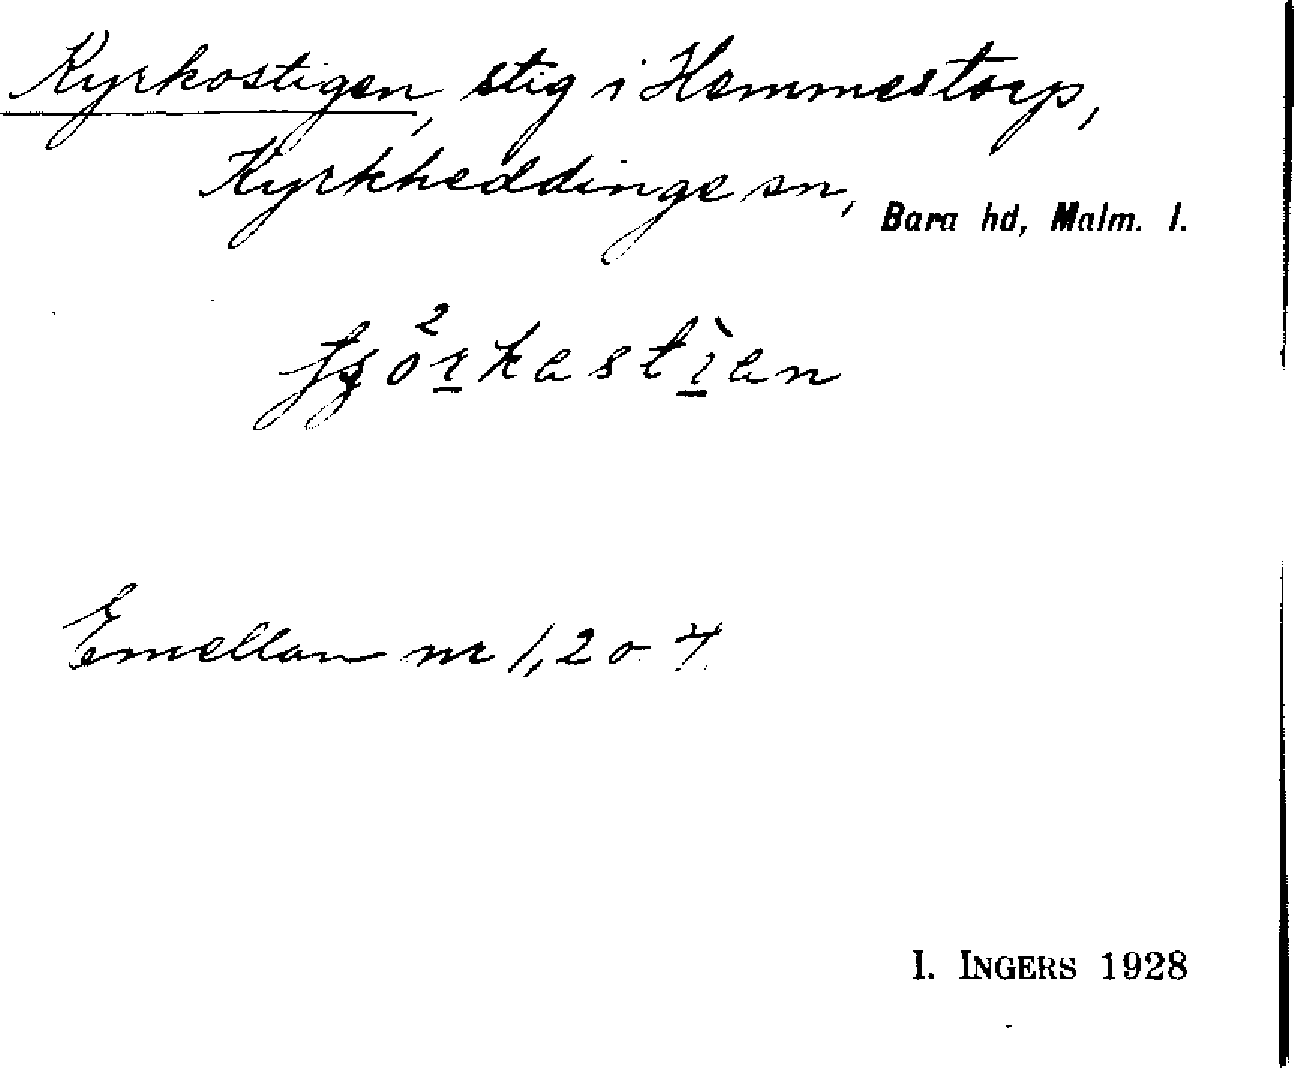 Kyrkostigen, stig i Hemmestorp,
Kyrkheddinge sn, Bara hd, Malm. l.
Emellan nr 1, 2 o 4.
I. INGERS 1928